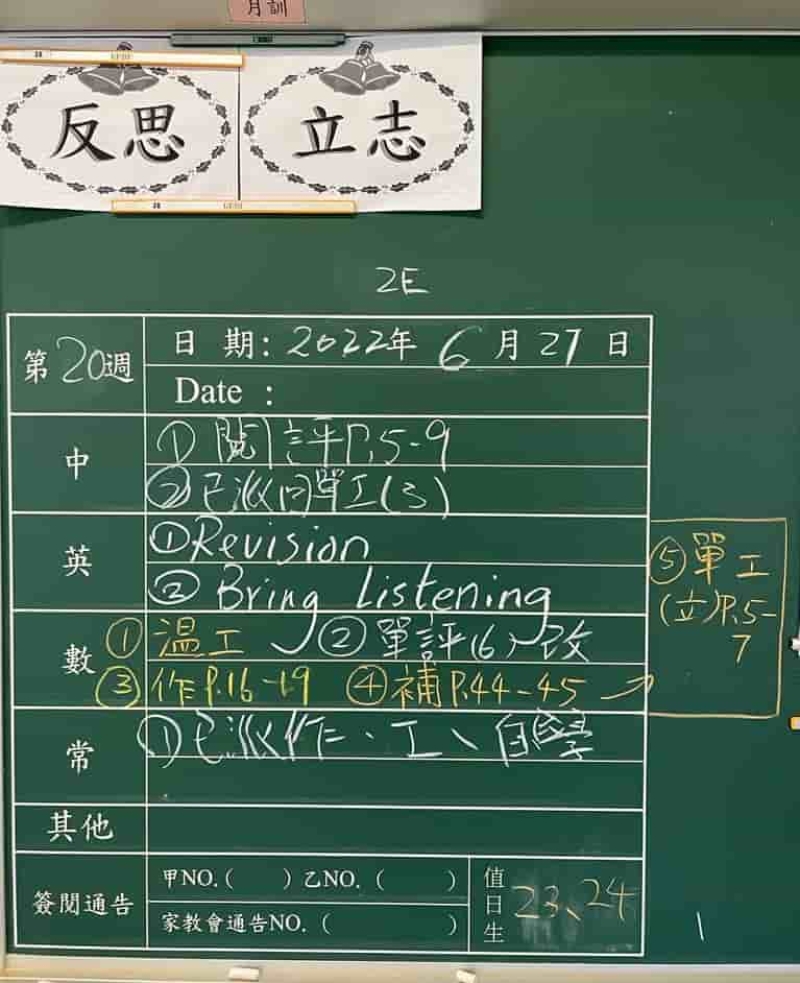 月訓
反思 立志
2E
第20週
日 期: 2022年 6 月 27 日
Date :
中
① 閱評P.5-9
②已派回單工(3)
英
①Revision
② Bring Listening
數
① 溫工 ② 單評(6)改
③ 作P.16-19 ④補P.44-45 →
⑤單工
(立)P.5-
7
常
①已派作、工、自學
其他
簽閱通告
甲NO.( ) 乙NO. ( )
家教會通告NO. ( )
值日生
23、24